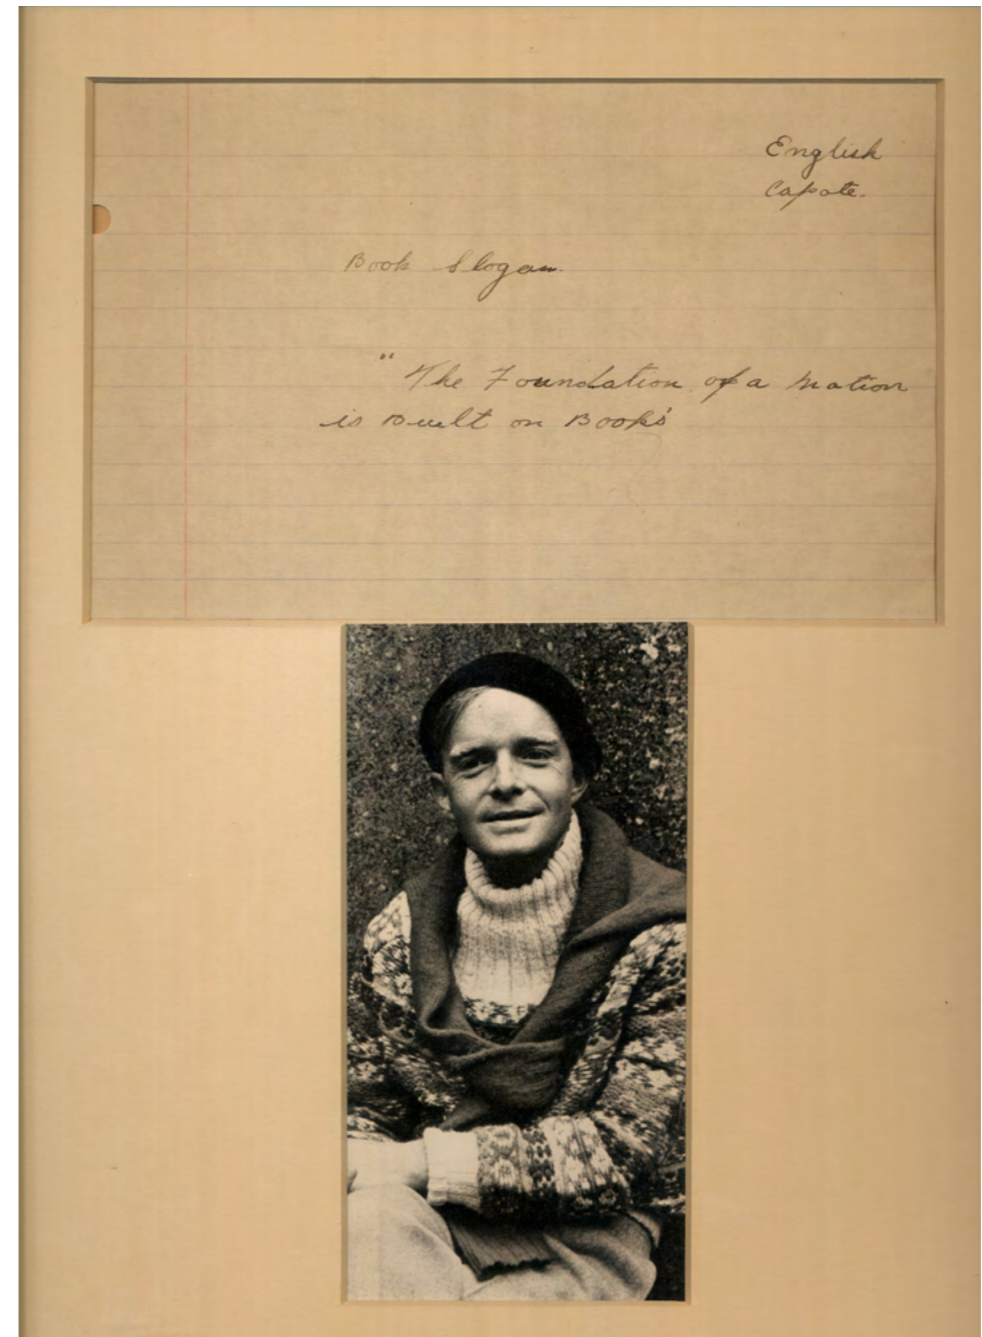 English
Capote.
Book Slogan.
"The Foundation of a Nation
is Built on Books"